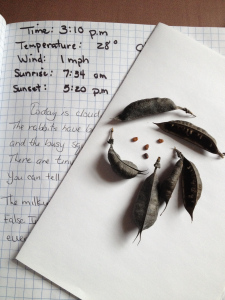 Time: 3:10 p.m
Temperature: 28°
Wind: 1 mph
Sunrise: 7:34 am
Sunset: 5:20 p.m
Today is cloud
The rabbits have b
and the busy sq
There are
You can tell
The milk
False I
even